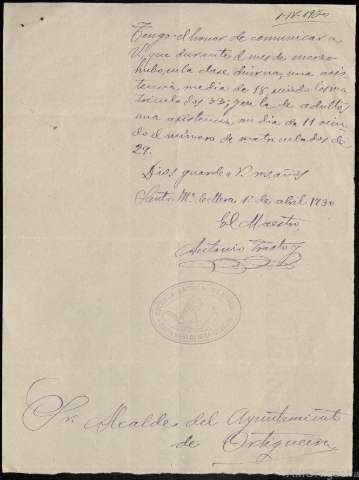 1-IV-1930
Tengo el honor de comunicar a
V. que durante el mes de marzo
hubo, en la clase diurna, una asis
tencia media de 18 siendo los ma
triculados 33; y en la de adultos
una asistencia media 11 sien
do el número de matriculados de
29.
Dios guarde a V. ms años
Santa Mª de Mera 1º de abril 1930
El Maestro,
Antonio
Sr. Alcalde del Ayuntamiento
de Ortigueira